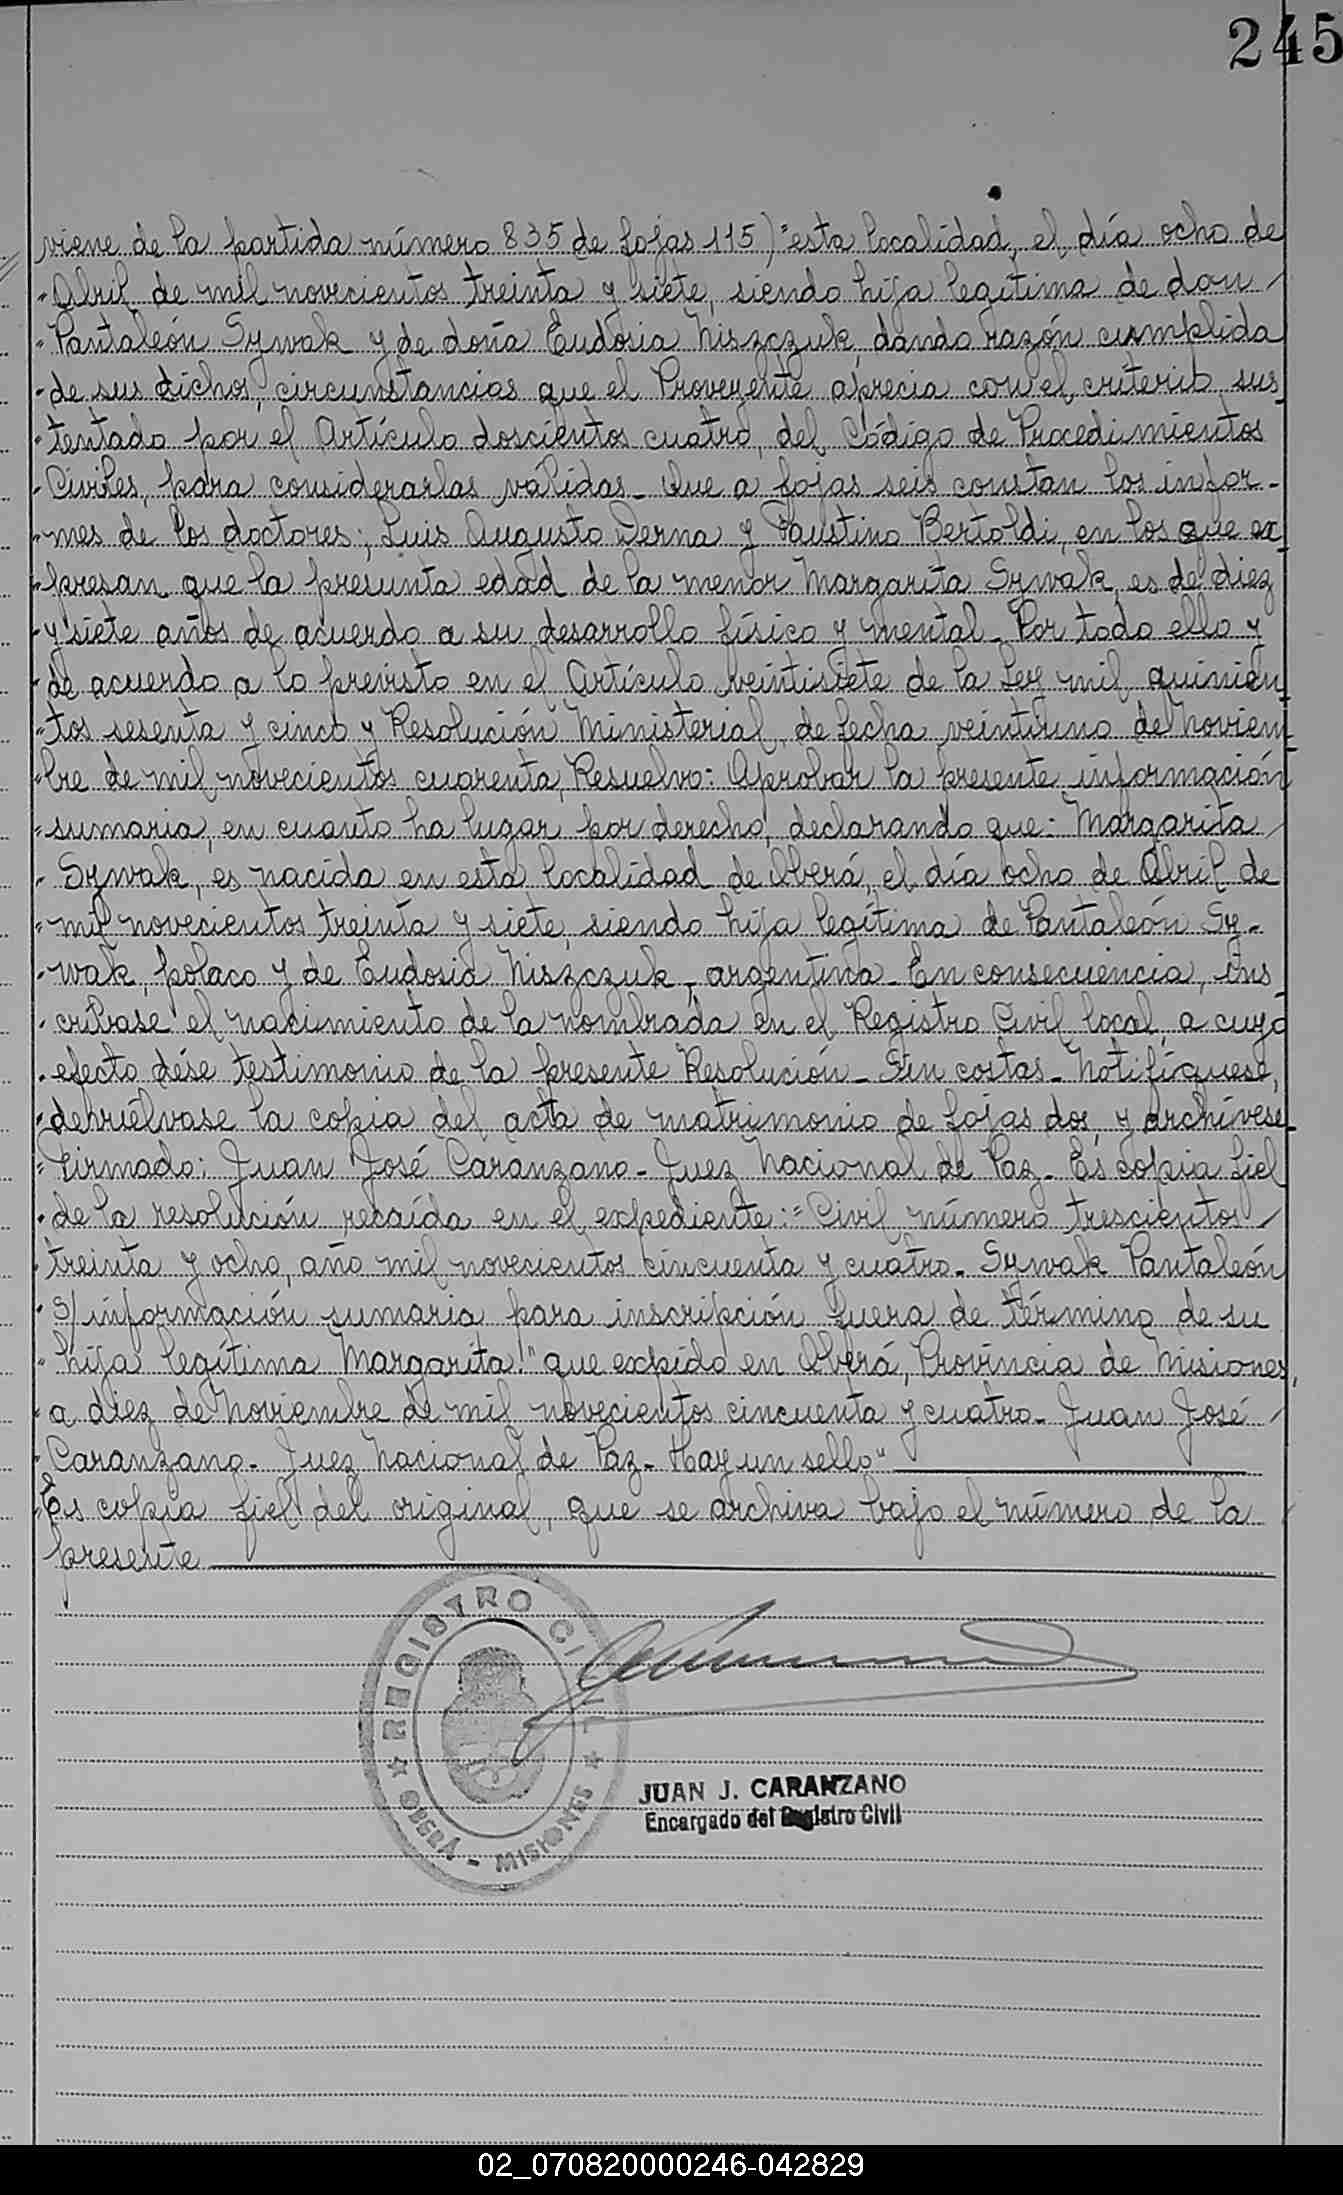 245
viene de la partida número 835 de fojas 115) "esta localidad, el día ocho de
"Abril de mil novecientos treinta y siete, siendo hija legítima de don
"Pantaleón Sywak y de doña Eudosia Niszczuk, dando razón cumplida
"de sus dichos, circunstancias que el Proveyente aprecia con el criterio sus
"tentado por el Artículo doscientos cuatro, del Código de Procedimientos
"Civiles, para considerarlas válidas_ Que a fojas seis constan los infor-
"mes de los doctores; Luis Augusto Derna y Faustino Bertoldi, en los que ex
"presan que la presunta edad de la menor Margarita Sywak, es de diez
"y siete años de acuerdo a su desarrollo físico y mental_ Por todo ello y
"de acuerdo a lo previsto en el Artículo veintisiete de la Ley mil quinien
"tos sesenta y cinco y Resolución Ministerial, de fecha veintiuno de Noviem
"bre de mil novecientos cuarenta, Resuelvo: Aprobar la presente información
"sumaria, en cuanto ha lugar por derecho, declarando que: Margarita
"Sywak, es nacida en esta localidad de Oberá, el día ocho de Abril de
"mil novecientos treinta y siete, siendo hija legítima de Pantaleón Sy-
"wak, polaco y de Eudosia Niszczuk, argentina_ En consecuencia, ins
"críbase el nacimiento de la nombrada en el Registro Civil local, a cuyo
"efecto dése testimonio de la presente Resolución_ Sin costas_ Notifíquese,
"devuélvase la copia del acta de matrimonio de fojas dos, y archívese_
"Firmado: Juan José Caranzano_ Juez Nacional de Paz_ Es copia fiel
"de la resolución recaída en el expediente:= Civil número trescientos
"treinta y ocho, año mil novecientos cincuenta y cuatro_ Sywak Pantaleón
"S/información sumaria para inscripción fuera de término de su
"hija legítima Margarita!" que expido en Oberá, Provincia de Misiones,
"a diez de Noviembre de mil novecientos cincuenta y cuatro_ Juan José
"Caranzano_ Juez Nacional de Paz_ Hay un sello"
Es copia fiel del original, que se archiva bajo el número de la
presente
REGISTRO CIVIL
OBERA - MISIONES
JUAN J. CARANZANO
Encargado del Registro Civil
02_070820000246-042829